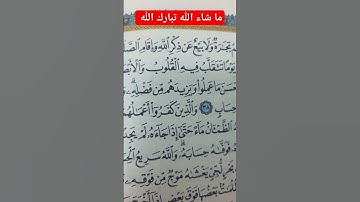 ما شاء الله تبارك الله
تِجَٰرَةٌ وَلَا بَيْعٌ عَن ذِكْرِ ٱللَّهِ وَإِقَامِ ٱلصَّ
يَوْمًا تَتَقَلَّبُ فِيهِ ٱلْقُلُوبُ وَٱلْأَبْصَ
حْسَنَ مَا عَمِلُوا۟ وَيَزِيدَهُم مِّن فَضْلِهِۦ
حِسَابٍ ٣٨ وَٱلَّذِينَ كَفَرُوٓا۟ أَعْمَٰلُهُمْ
ٱلظَّمْـَٔانُ مَآءً حَتَّىٰٓ إِذَا جَآءَهُۥ لَمْ يَجِدْ
فَوَفَّىٰهُ حِسَابَهُۥ وَٱللَّهُ سَرِيعُ ٱلْحِ
بَحْرٍ لُّجِّىٍّ يَغْشَىٰهُ مَوْجٌ مِّن فَوْقِهِۦ
بَعْضُهَا فَوْقَ بَعْضٍ إِذَآ